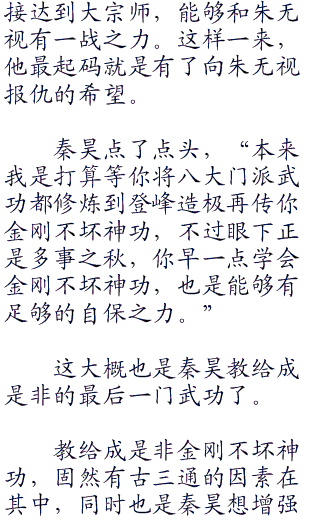 接达到大宗师，能够和朱无
视有一战之力。这样一来，
他最起码就是有了向朱无视
报仇的希望。
秦昊点了点头，“本来
我是打算等你将八大门派武
功都修炼到登峰造极再传你
金刚不坏神功，不过眼下正
是多事之秋，你早一点学会
金刚不坏神功，也是能够有
足够的自保之力。”
这大概也是秦昊教给成
是非的最后一门武功了。
教给成是非金刚不坏神
功，固然有古三通的因素在
其中，同时也是秦昊想增强